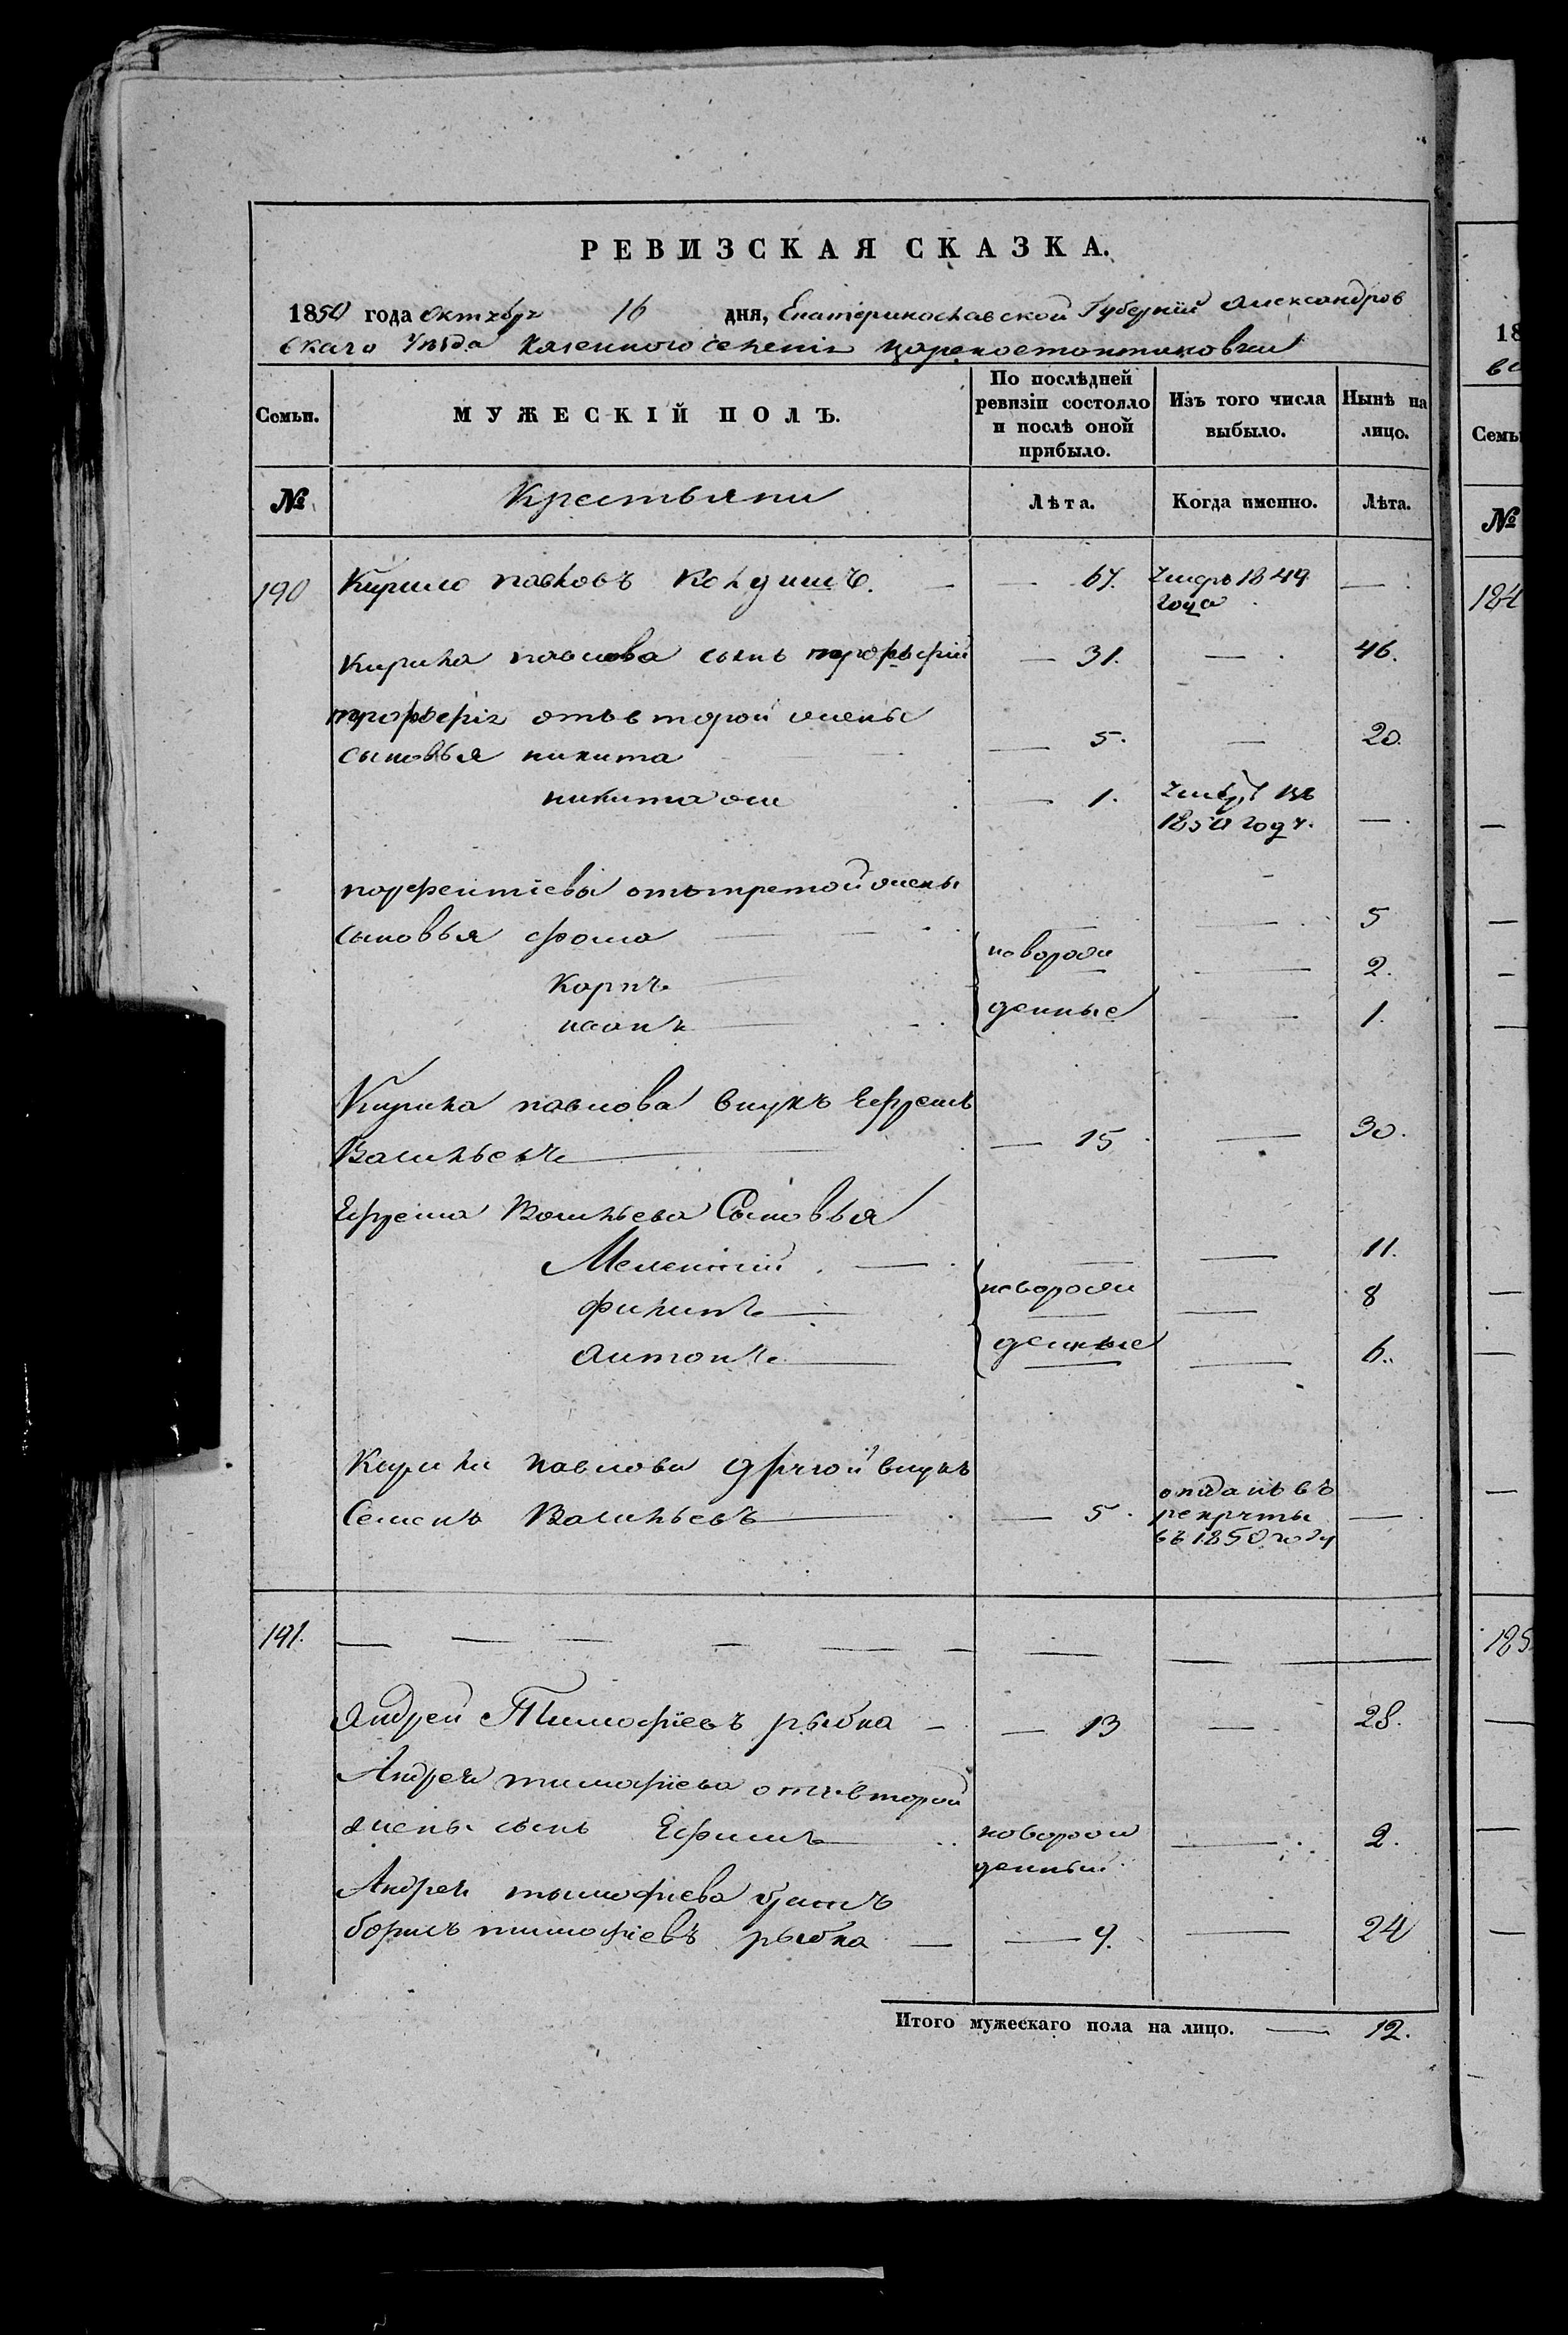 РЕВИЗСКАЯ СКАЗКА.
1850 года октября 16 дня, Екатеринославской Губернии Александров
скаго уезда Казенного селения Цареконстантиновки
Семьи. МУЖЕСКІЙ ПОЛЪ. По послѣдней ревизіи состояло и послѣ оной прибыло. Изъ того числа выбыло. Нынѣ на лицо.
№ Крестьяни Лѣта. Когда именно. Лѣта.
190 Кирило павловъ — 67. умеръ 1849 — 
года
Кирила павлова сынъ — 31. — 46.
отъ второй жены
сыновья никита — 5. — 20.
никита же — 1. 1850 году. —
отъ третой жены
сыновья фома — — 5
Карпъ новорож — 2.
денные — 1.
Кирила павлова внукъ Ефремъ
Васильевъ — 15 — 30.
Ефрема Васильева Сыновья
Мелентий — — 11.
филипъ новорож — 8
антонъ денные — 6.
Кирила павлова другой внукъ
Семенъ Васильевъ — 5. отданъ въ рекруты въ 1850 году —
191. — — — — — —
Андрей Тимофіевъ рыбка — — 13 — 28.
Андрея тимофіева отъ второй
жены сынъ Ефимъ новорож — 2.
денный
Андрея тимофіева братъ
борисъ тимофіевъ рыбка — — 9. — 24
Итого мужескаго пола на лицо. — 12.
18
Семьи
№
184
185